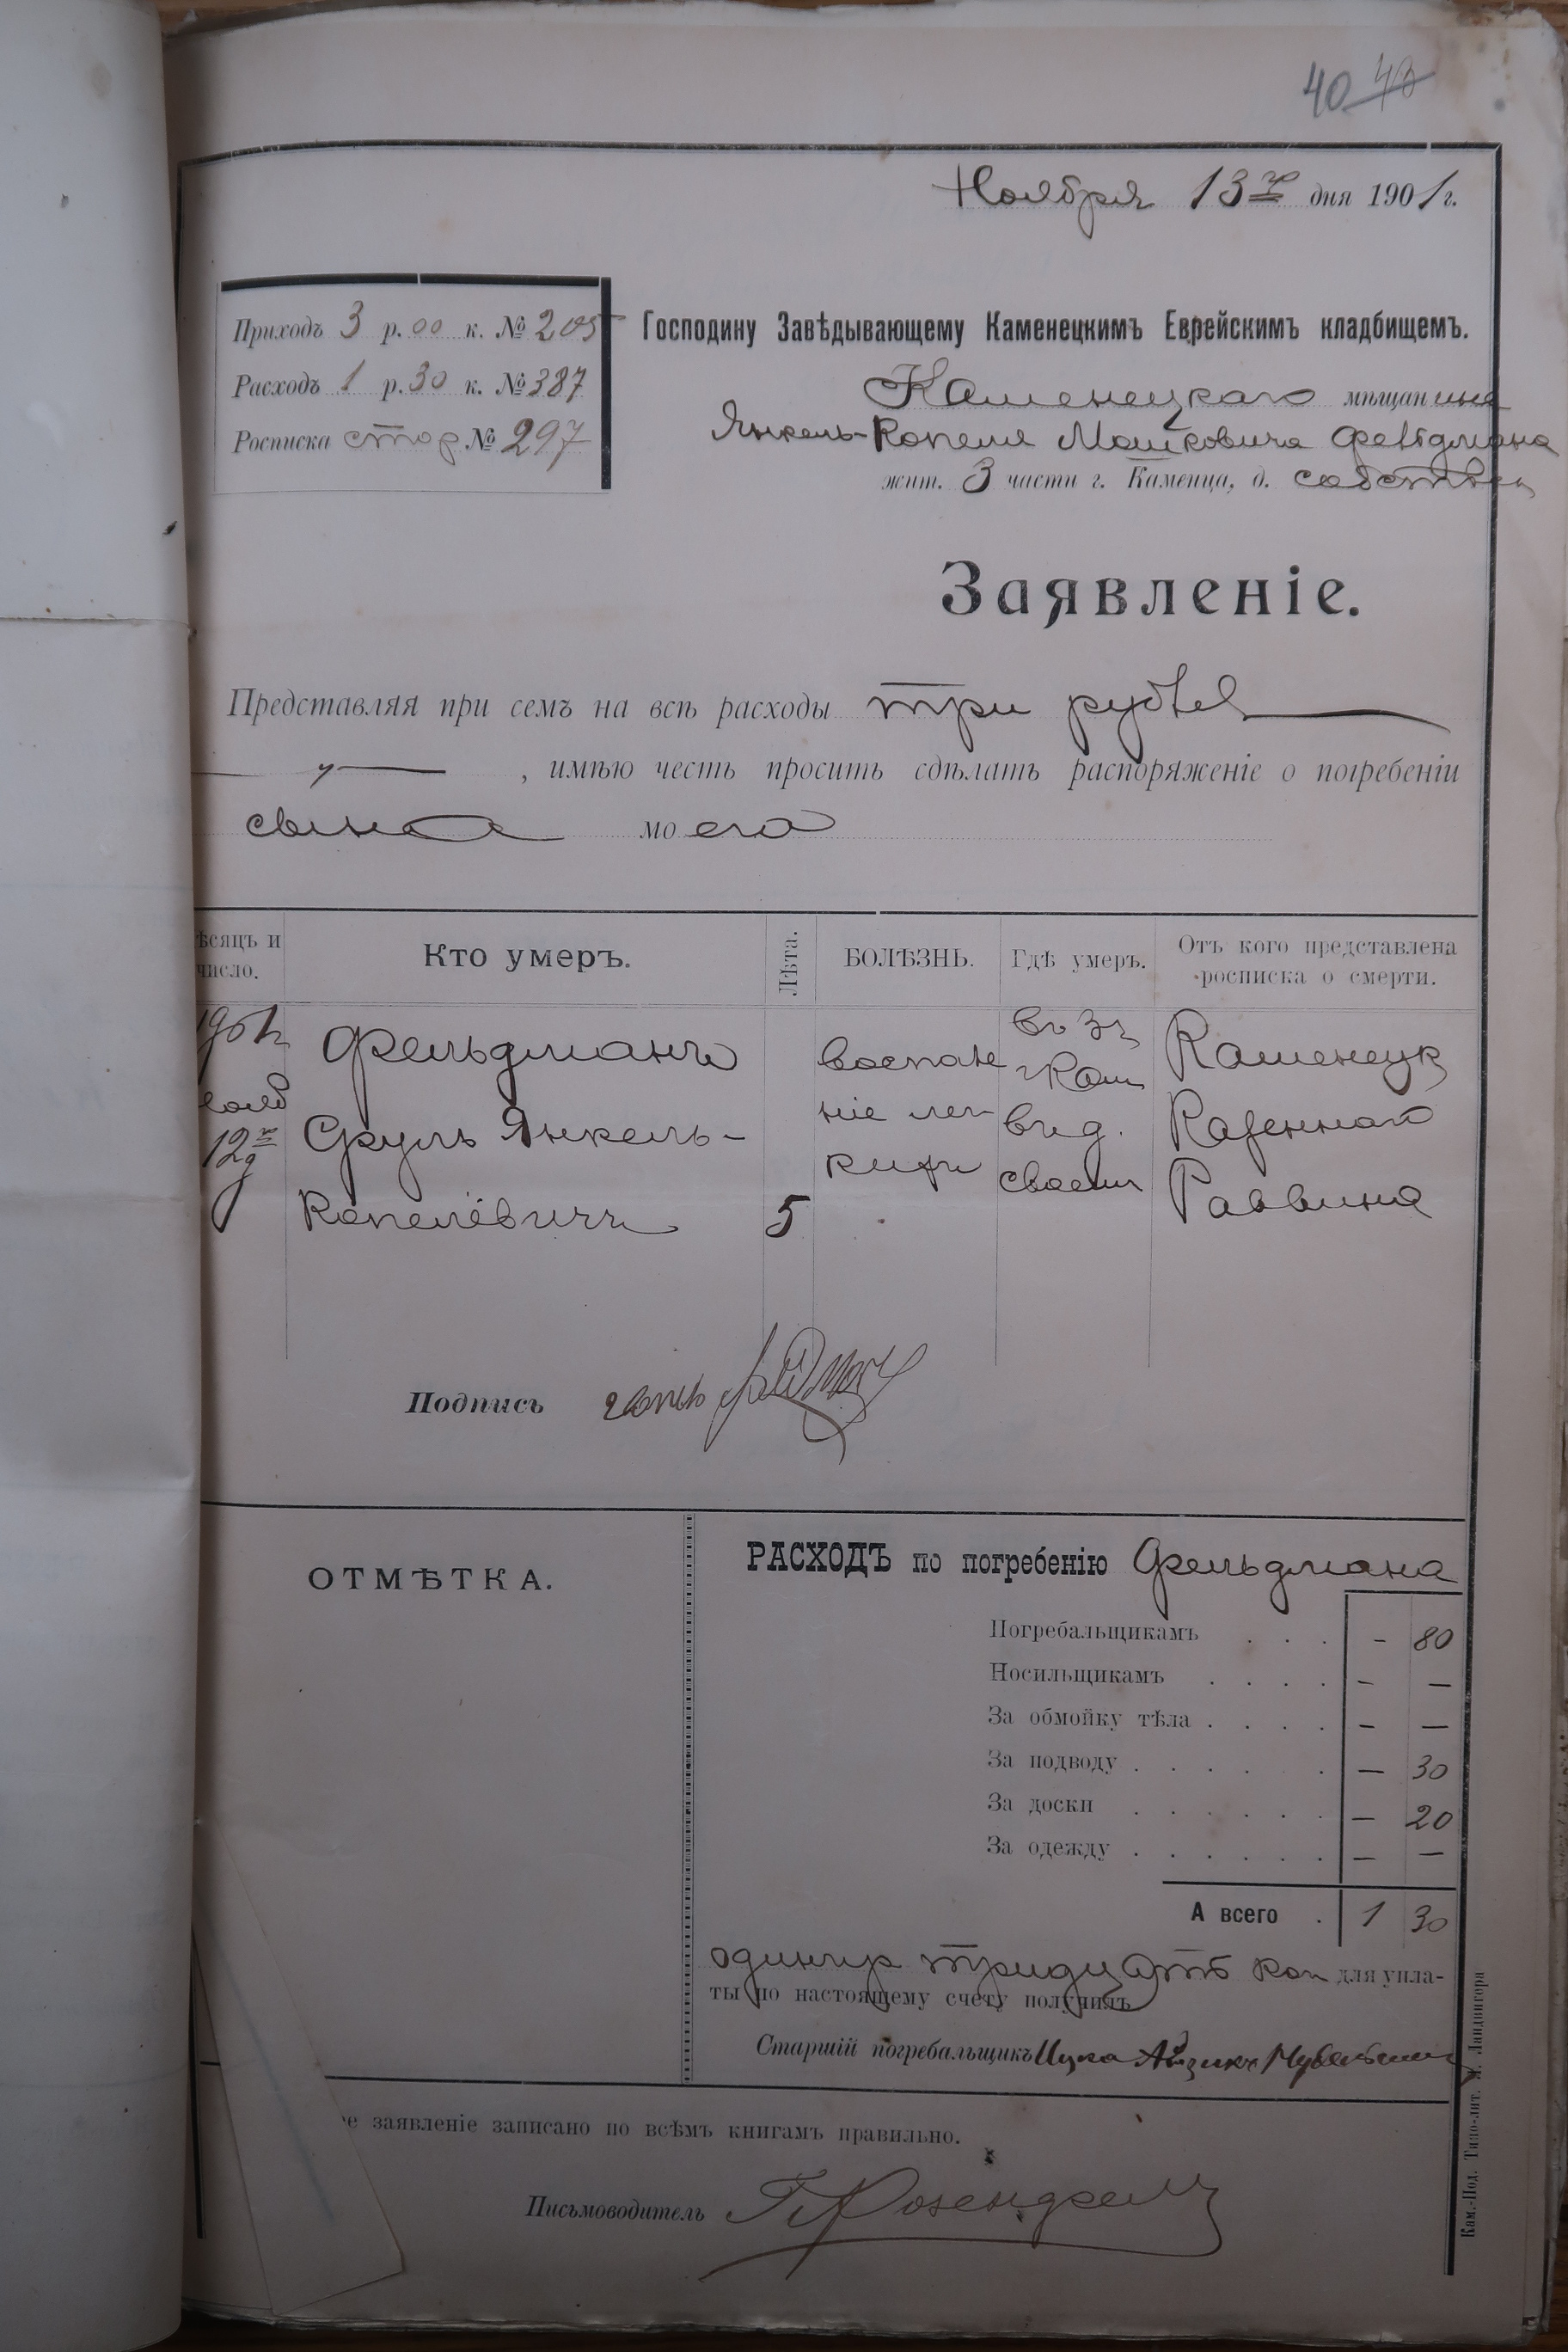 40 40
Ноября 13го дня 1901 г.
Приходъ 3 р. 00 к. № 205
Расходъ 1 р. 30 к. № 387
Росписка стор № 297
Господину Завѣдывающему Каменецкимъ Еврейскимъ кладбищемъ.
Каменецкаго мѣщанина
Янкель-Копеля Мошковича Фельдмана
жит. 3 части г. Каменца, д. собствен
Заявленіе.
Представляя при семъ на всѣ расходы три рубл
, имѣю честь просить сдѣлать распоряженіе о погребеніи
сына моего
ѣсяцъ и число.
Кто умеръ.
Лѣта.
БОЛѢЗНЬ.
Гдѣ умеръ.
Отъ кого представлена росписка о смерти.
12
Фельдманъ
Сруль Янкель-
Копелевичъ
5
воспале
ніе лег
кихъ
въ 3 ч
г Кам
въ д.
своемъ
Каменецк
Казеннаго
Раввина
Подпись
ОТМѢТКА.
РАСХОДЪ по погребенію Фельдмана
Погребальщикамъ . . . - 80
Носильщикамъ . . . . - —
За обмойку тѣла . . . . - —
За подводу . . . . . . — 30
За доски . . . . . . — 20
За одежду . . . . . . — —
А всего . 1 30
одинъ р тридцать коп для упла-
ты по настоящему счету получилъ
Старшій погребальщикъ Айзикъ
е заявленіе записано по всѣмъ книгамъ правильно.
Письмоводитель
Кам.-Под. Типо-лит. Ландвигера